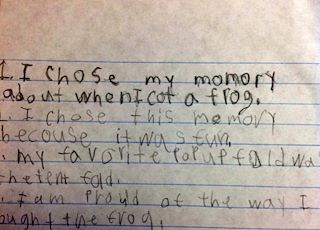 1. I chose my momory
about when I cot a frog.
. I chose this memory
becouse it was fun.
. my favorite Pop up fold wa
thetent fold.
. I am Proud of the way I
ought the frog.